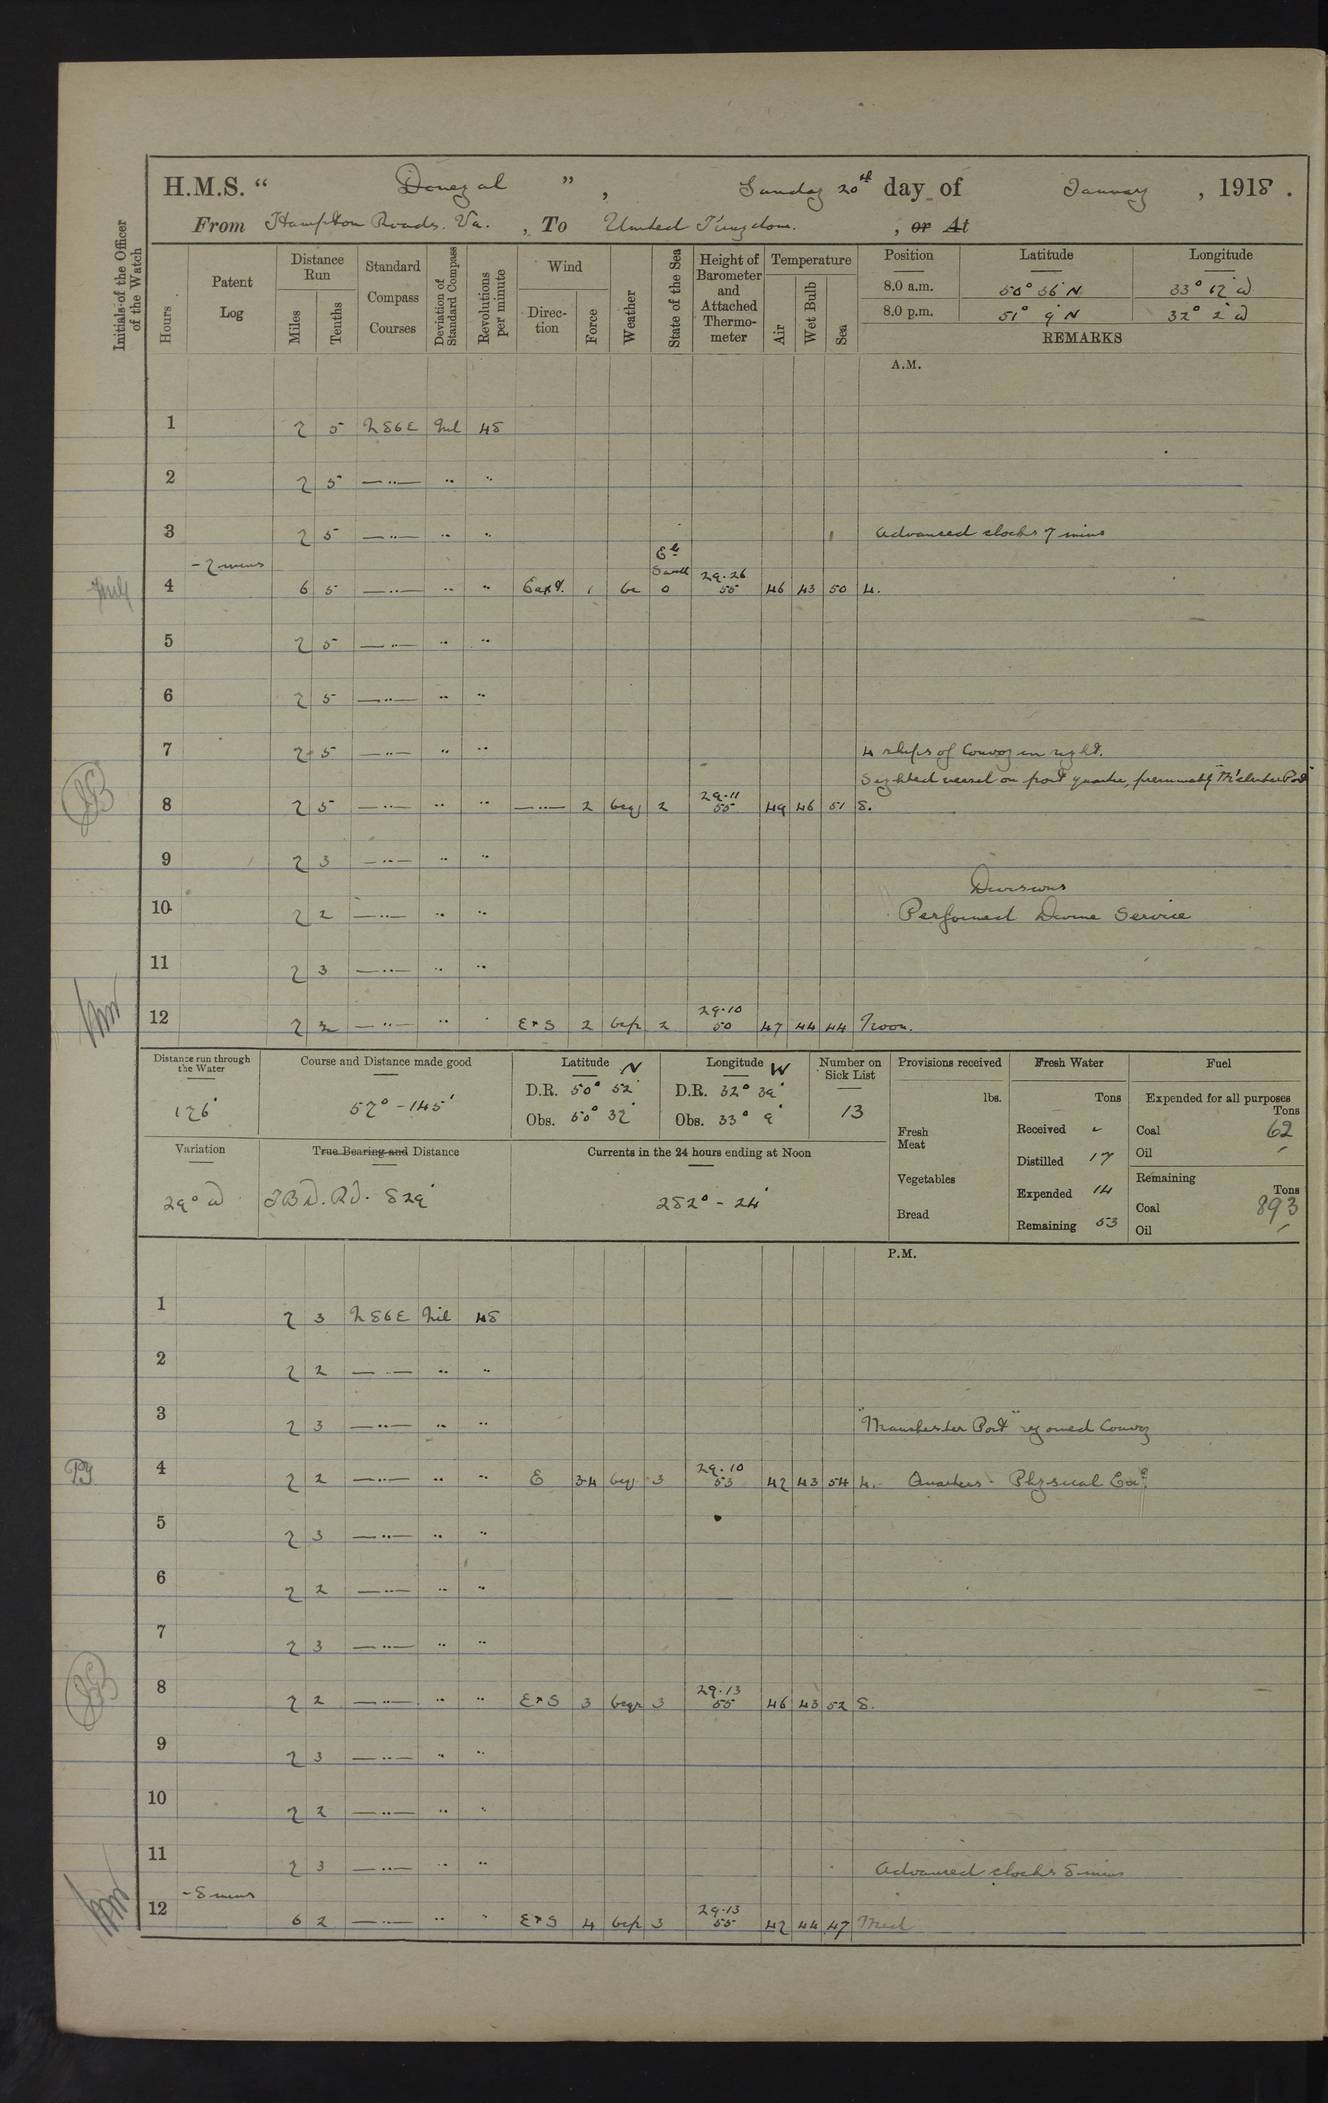 H.M.S. “ Donegal ” , Sunday 20th day of January , 1918 .
From Hampton Roads. Va. , To United Kingdom. , or At
Initials of the Officer of the Watch
Hours
Patent Log
Distance Run
Miles
Tenths
Standard Compass Courses
Deviation of Standard Compass
Revolutions per minute
Wind
Direction
Force
Weather
State of the Sea
Height of Barometer and Attached Thermometer
Temperature
Air
Wet Bulb
Sea
Position Latitude Longitude
8.0 a.m. 50° 36' N 33° 12' W
8.0 p.m. 51° 9' N 32° 2' W
REMARKS
A.M.
1 7 5 N 86 E Nil 48
2 7 5 —..— .. ..
3 7 5 —..— .. .. Advanced clocks 7 mins
4 -7 mins 6 5 —..— .. .. East. 1 bc Swell 0 29.26 55 46 43 50 4.
5 7 5 —..— .. ..
6 7 5 —..— .. ..
7 7 5 —..— .. .. 4 ships of Convoy in sight.
Sighted vessel on port quarter, presumably "M'chester Port"
8 7 5 —..— .. .. —..— 2 bcq 2 29.11 55 49 46 51 8.
9 7 3 —..— .. ..
Divisions
10 7 2 —..— .. .. Performed Divine Service
11 7 3 —..— .. ..
12 7 2 —..— .. .. ExS 2 bcp 2 29.10 50 47 44 44 Noon.
Distance run through the Water
176'
Course and Distance made good
57° - 145'
Latitude N
D.R. 50° 52'
Obs. 50° 37'
Longitude W
D.R. 32° 39'
Obs. 33° 9'
Number on Sick List
13
Provisions received
lbs.
Fresh Meat
Vegetables
Bread
Fresh Water
Tons
Received
Distilled 17
Expended 14
Remaining 53
Fuel
Expended for all purposes
Tons
Coal 62
Oil
Remaining
Tons
Coal 893
Oil
Variation
29° W
True Bearing and Distance
829'
Currents in the 24 hours ending at Noon
282° - 24'
P.M.
1 7 3 N 86 E Nil 48
2 7 2 —..— .. ..
3 7 3 —..— .. .. "Manchester Port" rejoined Convoy
4 7 2 —..— .. .. E 3-4 bcq 3 29.10 53 42 43 54 4. Quarters. Physical Exe
5 7 3 —..— .. ..
6 7 2 —..— .. ..
7 7 3 —..— .. ..
8 7 2 —..— .. .. ExS 3 bcqr 3 29.13 55 46 43 52 8.
9 7 3 —..— .. ..
10 7 2 —..— .. ..
11 7 3 —..— .. .. Advanced clocks 8 mins
12 -8 mins 6 2 —..— .. .. ExS 4 bcp 3 29.13 55 42 44 47 Mid